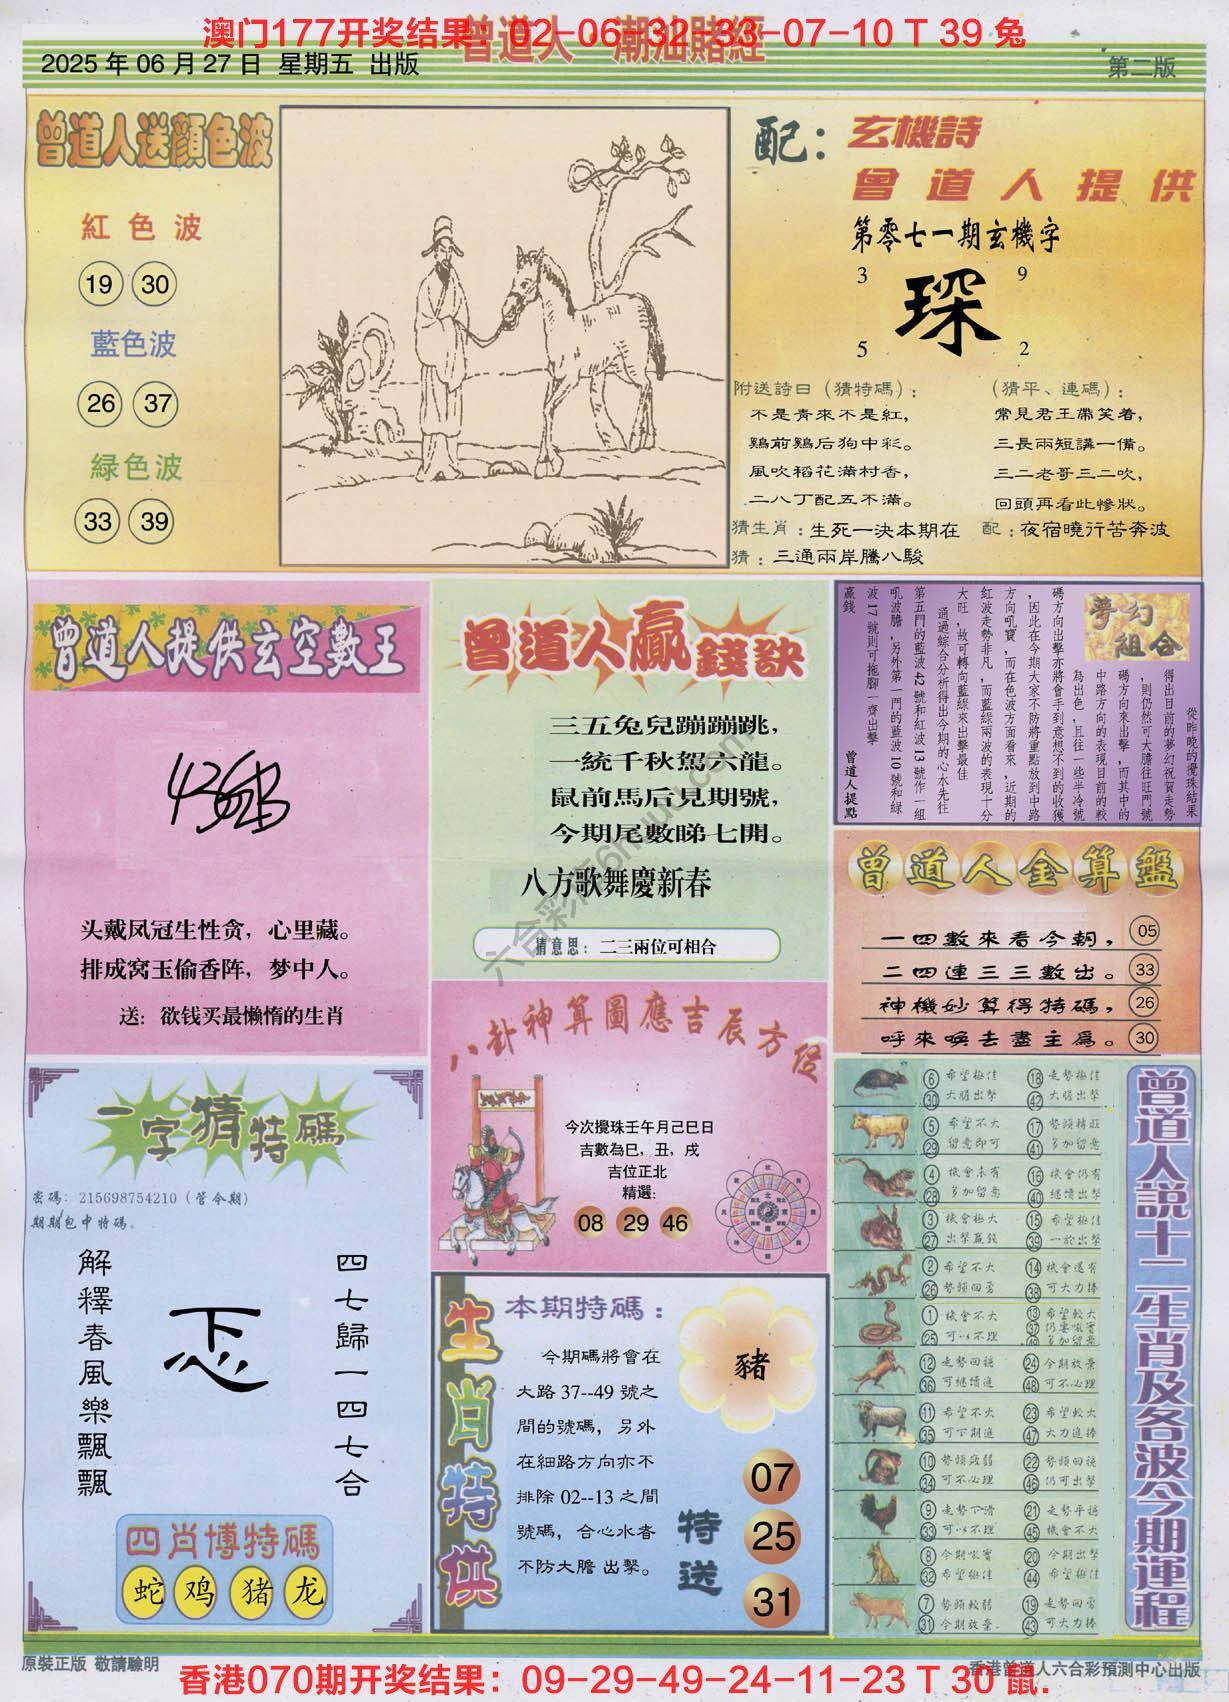 澳门177开奖结果：02-06-32-33-07-10 T 39 兔
曾道人 潮汕賭經
2025 年 06 月 27 日 星期五 出版
第二版
曾道人送顏色波
紅色波
19 30
藍色波
26 37
緑色波
33 39
配：
玄機詩
曾道人提供
第零七一期玄機字
3 9
琛
5 2
附送詩曰（猜特碼）：
不是青來不是紅，
鷄前鷄后狗中彩。
風吹稻花滿村香，
二八丁配五不滿。
（猜平、連碼）：
常見君王帶笑着，
三長兩短講一備。
三二老哥三二吹，
回頭再看此慘狀。
猜生肖：生死一決本期在
配：夜宿曉行苦奔波
猜：三通兩岸騰八駿
曾道人提供玄空數王
头戴凤冠生性贪，心里藏。
排成窝玉偷香阵，梦中人。
送：欲钱买最懒惰的生肖
曾道人贏錢訣
三五兔兒蹦蹦跳，
一統千秋駕六龍。
鼠前馬后見期號，
今期尾數睇七開。
八方歌舞慶新春
猜意思：二三兩位可相合
夢幻組合
從昨晚的攪珠結果
得出目前的夢幻祝賀走勢
，則仍然可大膽往旺門號
碼方向來出擊，而其中的
中路方向的表現目前的較
為出色，且往一些半冷號
碼方向出擊亦將會手到意想不到的收獲
，因此在今期大家不防將重點放到中路
方向吼寶，而在色波方面看來，近期的
紅波走勢非凡，而藍綠兩波的表現十分
大旺，故可轉向藍綠來出擊最佳
通過綜合分析得出今期的心水先往
第五門的藍波 42 號和紅波 13 號作一組
吼波膽，另外第一門的藍波 10 號和綠
波 17 號則可拖腳一齊出擊
贏錢
曾道人提點
曾道人金算盤
一四數來看今朝， 05
二四連三三數出。 33
神機妙算得特碼， 26
呼來喚去盡主爲。 30
八卦神算圖應吉辰方位
今次攪珠壬午月己巳日
吉數為巳，丑，戌
吉位正北
精選：
08 29 46
一字猜特碼
密碼：215698754210（管今期）
期期包中特碼。
解釋春風樂飄飄
四七歸一四七合
四肖博特碼
蛇 鸡 猪 龙
生肖特供
本期特碼：
今期碼將會在
大路 37--49 號之
間的號碼，另外
在細路方向亦不
排除 02--13 之間
號碼，合心水者
不防大膽 出擊。
豬
特送
07
25
31
曾道人説十二生肖及各波今期運程
6 希望極佳 18 走勢極佳
30 大膽出擊 42 大膽出擊
5 希望不大 17 勢頭精莊
29 留意即可 41 多加留意
4 機會未有 16 機會仍有
28 多加留意 40 繼續出擊
3 機會極大 15 希望極佳
27 出擊贏錢 39 一於出擊
2 希望不大 14 機會還有
26 勢頭回勇 38 可大力捧
1 機會不大 13 希望較大
25 可以不理 37
49 多加留意
12 走勢回穩 24 今期放棄
36 可繼續追 48 可不必理
11 希望不大 23 希望較大
35 可下期追 47 大力追捧
10 勢頭疲弱 22 勢頭回穩
34 可不必理 46 仍可出擊
9 走勢下滑 21 走勢平穩
33 可以不理 45 機會不大
8 今期吼實 20 今期出擊
32 希望極佳 44 希望極佳
7 勢頭較弱 19 走勢回勇
31 今期放棄. 43 可大力捧
原裝正版 敬請驗明
香港曾道人六合彩預測中心出版
香港070期开奖结果：09-29-49-24-11-23 T 30 鼠.